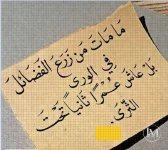 مَا مَاتَ مَن زَرَعَ الفَضَائلَ
في الوَرى
بَل عَاشَ عُمرًا ثَانيًا تَحتَ
الثَّرى.